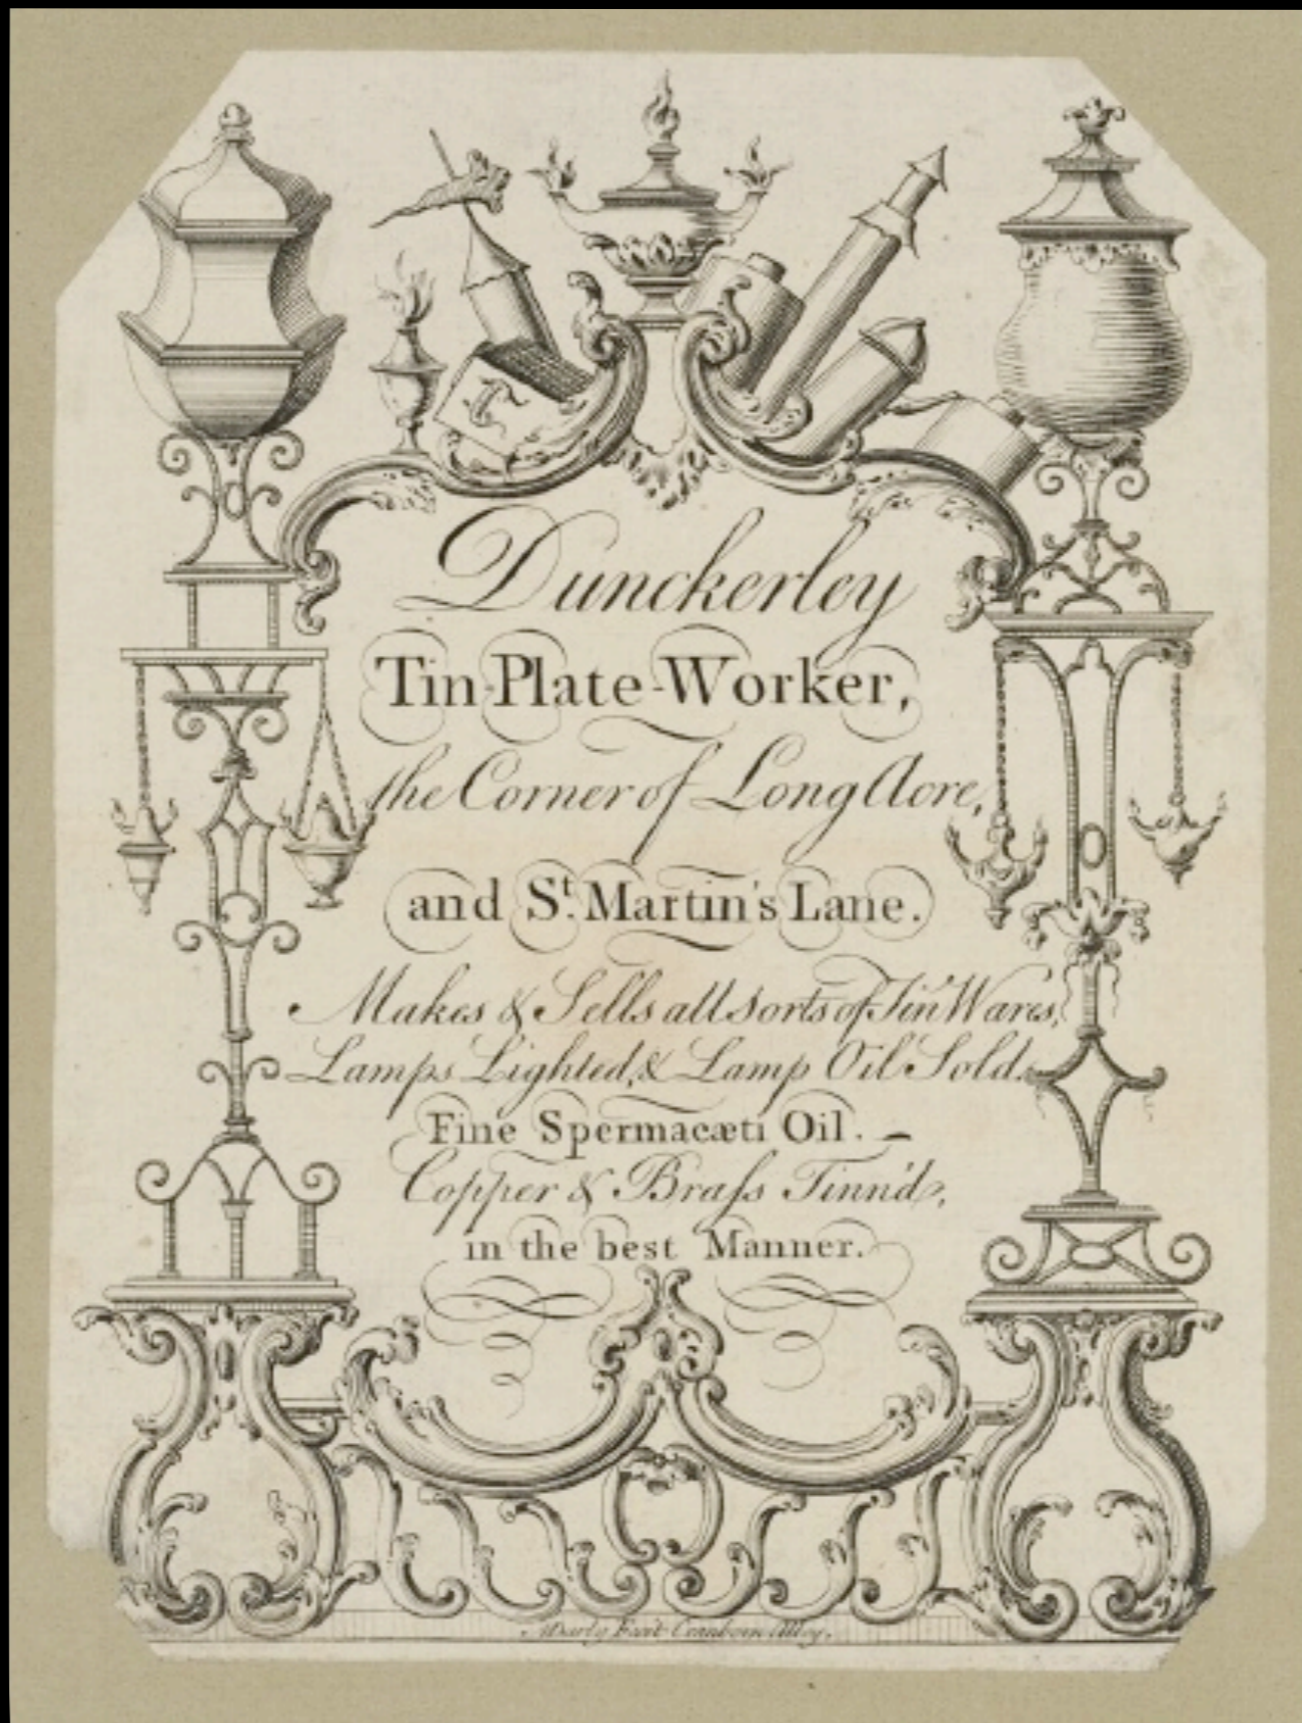 Dunckerley
Tin-Plate-Worker,
the Corner of Long Acre,
and St. Martin's Lane.
Makes & Sells all Sorts of Tin Wares,
Lamps Lighted, & Lamp Oil Sold.
Fine Spermacæti Oil.
Copper & Braſs Tinn'd,
in the best Manner.
Cranborn Alley.